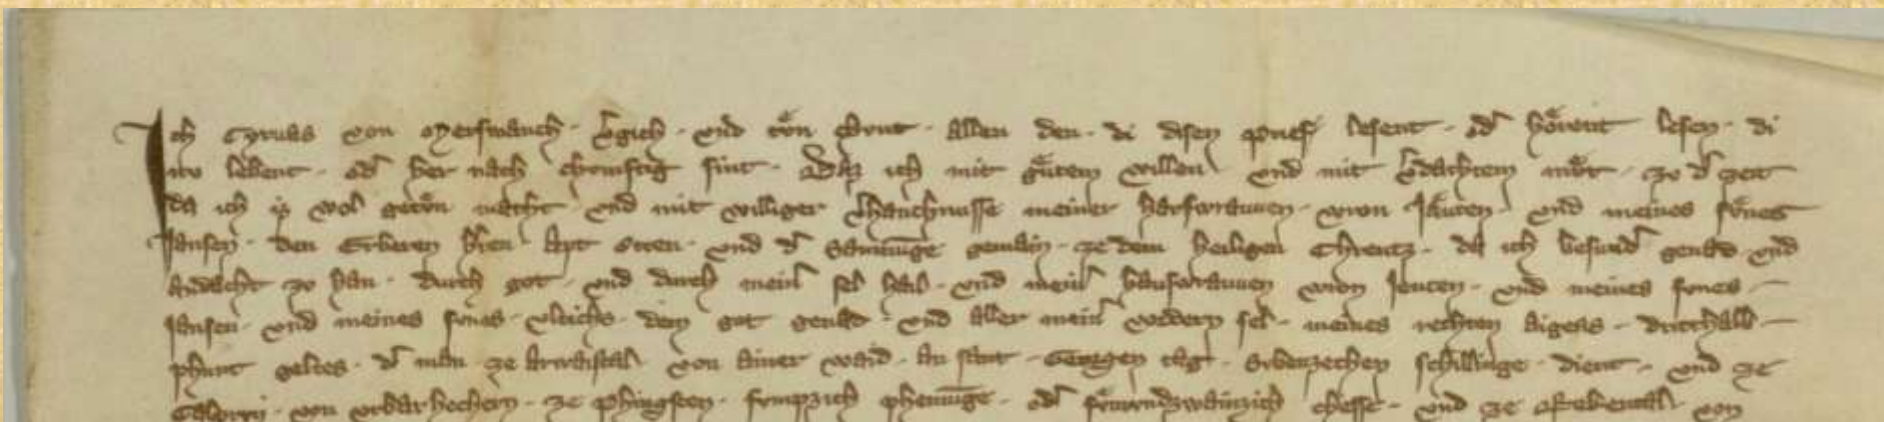 Ich von vgich und tuͦn chunt allen den di disen prief lesent od hoͤrent lesen di
nv lebent od her nach chunftig sint Daz ich mit guͤtem willen und mit vdachtem muͦt zo d zeit
da ich iz wol getuͦn macht und mit williger meiner hausvrawen vron Jaͤuten und meines suͤnes
Jansen den Erberen hren Apt Otten und d samnunge gemain ze dem heiligen Chreutz da ich besund genad und
andacht zo han durch got und durch mein sel hail und mein hausvrawen vron Jeuten und meines sunes
Jansen und meines sunes vlreichs dem got genad und aller mein vordern sel meines rechten aigens dritthalb
phunt geltes d man ze von ainer waid an sant Georgen tag sibenzehen schillinge dient und ze
von ze phingsten fumpzich phenninge od chesse und ze von